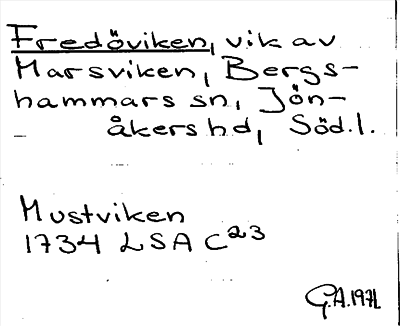 Fredöviken, vik av
Marsviken, Bergs-
hammars sn, Jön-
åkers hd, Söd.l.
Mustviken
1734 LSA C23
G.A. 1971